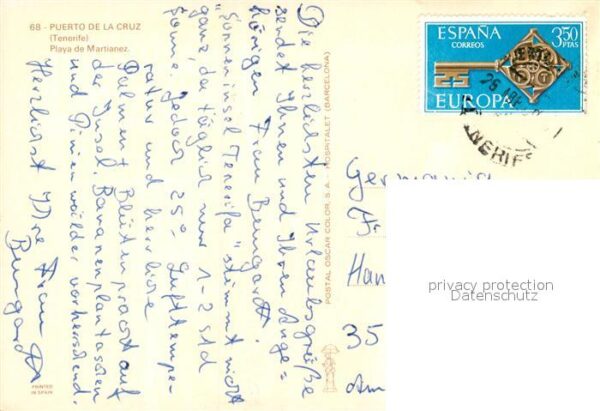 68 - PUERTO DE LA CRUZ
(Tenerife)
Playa de Martianez.
Die herzlichsten Urlaubsgrüße
sendet Ihnen und Ihren Ange-
hörigen Frau Bungardt.
"Sonneninsel Tenerifa" stimmt nicht
ganz, da täglich nur 1-2 Std
Sonne. Jedoch 25° Lufttempe-
ratur und herrliche
Palmen u. Blütenpracht auf
der Insel. Bananenplantagen
und Pinienwälder vorherrschend.
Herzlichst Ihre Frau
Bungardt
POSTAL OSCAR COLOR, S. A. - HOSPITALET (BARCELONA)
PRINTED
IN SPAIN
ESPAÑA
CORREOS
3,50
PTAS
EUROPA
26
Germania
Han
35
Am
privacy protection
Datenschutz